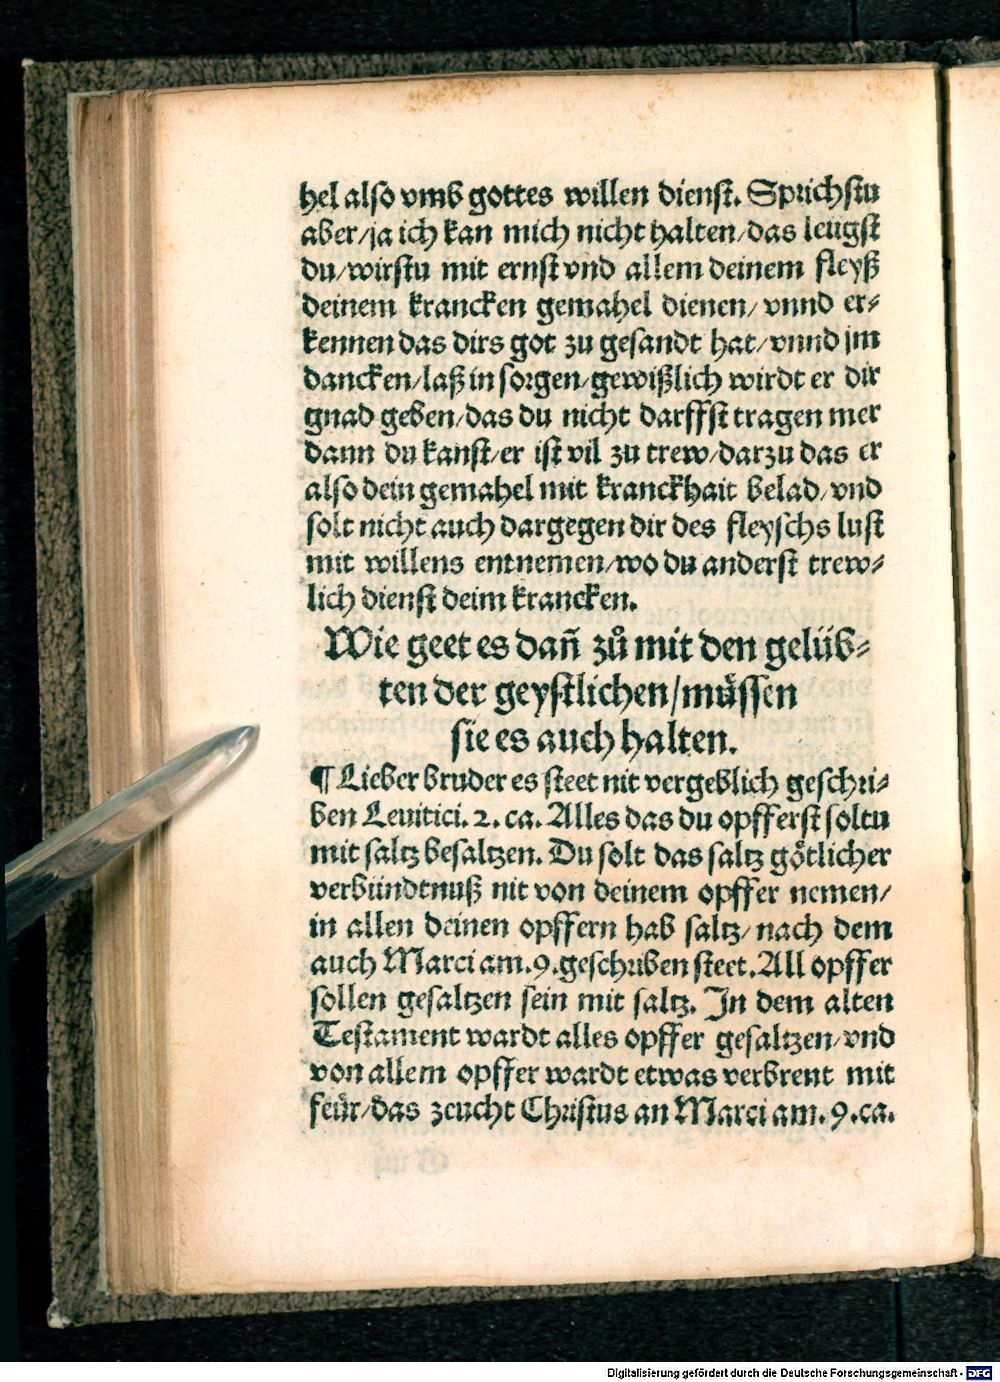 hel also vmb gottes willen dienst. Sprichstu
aber/ja ich kan mich nicht halten/das leugst
du/wirstu mit ernst vnd allem deinem fleyß
deinem krancken gemahel dienen/ vnnd er⸗
kennen das dirs got zu gesandt hat/vnnd jm
dancken/laß in sorgen/gewißlich wirdt er dir
gnad geben/das du nicht darffst tragen mer
dann du kanst/er ist vil zu trew/darzu das er
also dein gemahel mit kranckhait belad/vnd
solt nicht auch dargegen dir des fleyschs lust
mit willens entnemen/wo du anderst trew⸗
lich dienst deim krancken.
Wie geet es dañ zů mit den gelüb⸗
ten der geystlichen/müssen
sie es auch halten.
¶ Lieber bruder es steet nit vergeblich geschri⸗
ben Leuitici. 2. ca. Alles das du opfferst soltu
mit saltz besaltzen. Du solt das saltz götlicher
verbündtnuß nit von deinem opffer nemen/
in allen deinen opffern hab saltz/ nach dem
auch Marci am.9.geschriben steet. All opffer
sollen gesaltzen sein mit saltz. In dem alten
Testament wardt alles opffer gesaltzen/vnd
von allem opffer wardt etwas verbrent mit
feür/das zeucht Christus an Marci am. 9.ca.
Digitalisierung gefördert durch die Deutsche Forschungsgemeinschaft - DFG